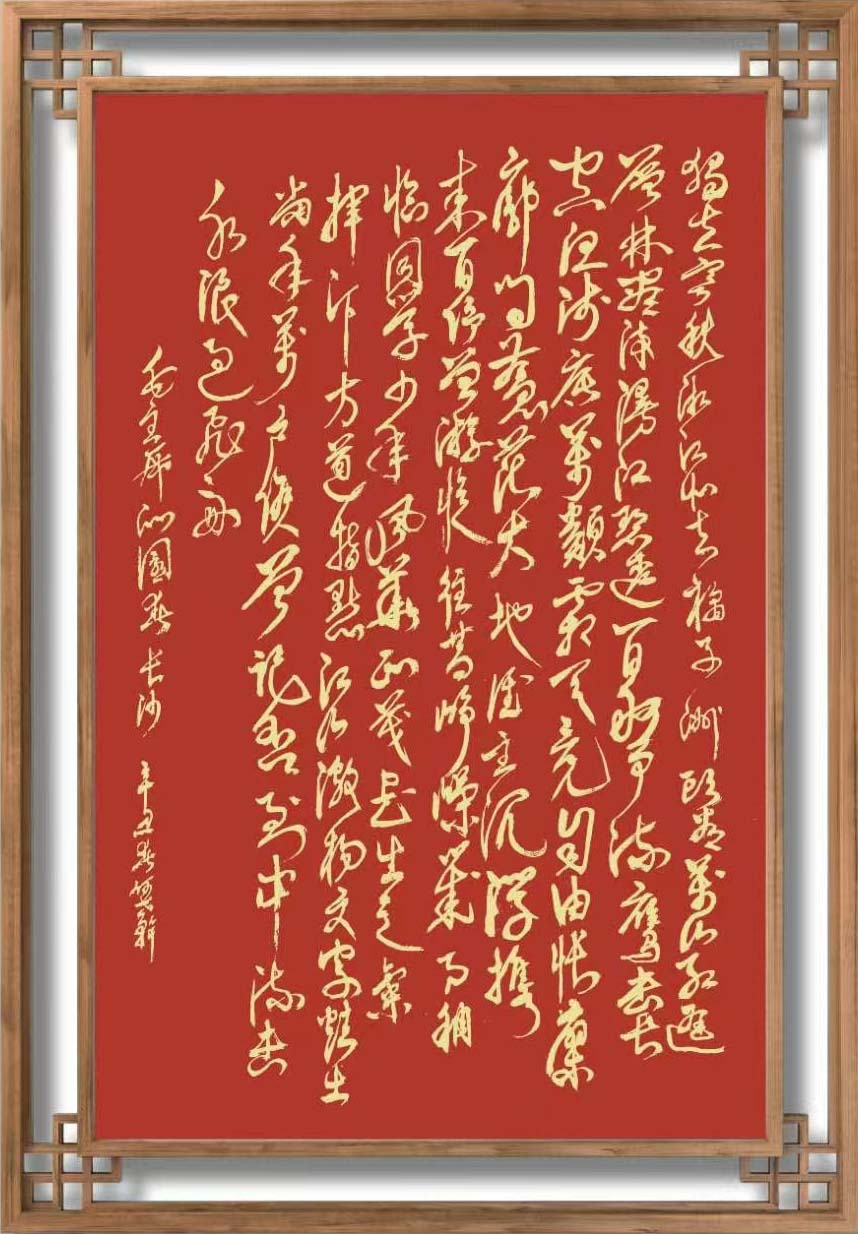 独立寒秋湘江北去橘子洲头看萬山红遍
層林盡染漫江碧透百舸争流鹰击长
空鱼浅底萬類霜天竞自由怅寥
廓问蒼茫大地谁主沉浮携
来百侣曾游忆往昔峥嵘岁月稠
恰同学少年风華正茂书生意氣
挥斥方遒指点江山激扬文字粪土
當年萬户侯曾记否到中流击
水浪遏飞舟
毛主席沁园春长沙 辛丑春